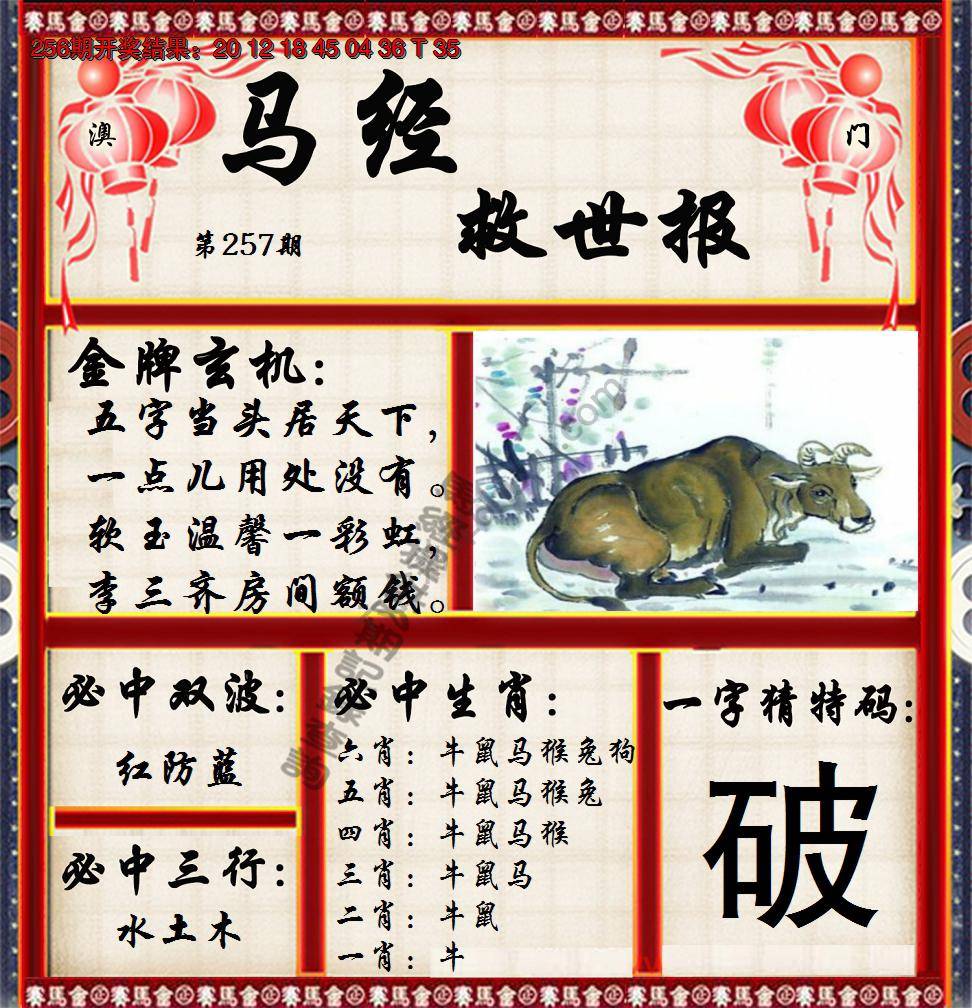 256期开奖结果：20 12 18 45 04 36 T 35
澳
门
马经
救世报
第257期
金牌玄机：
五字当头居天下，
一点儿用处没有。
软玉温馨一彩虹，
李三齐房间额钱。
必中双波：
红防蓝
必中三行：
水土木
必中生肖：
六肖：牛鼠马猴兔狗
五肖：牛鼠马猴兔
四肖：牛鼠马猴
三肖：牛鼠马
二肖：牛鼠
一肖：牛
一字猜特码：
破